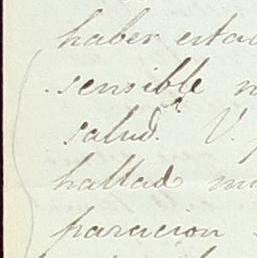 haber esta
sensible n
salud. V.
hallad m
paracion